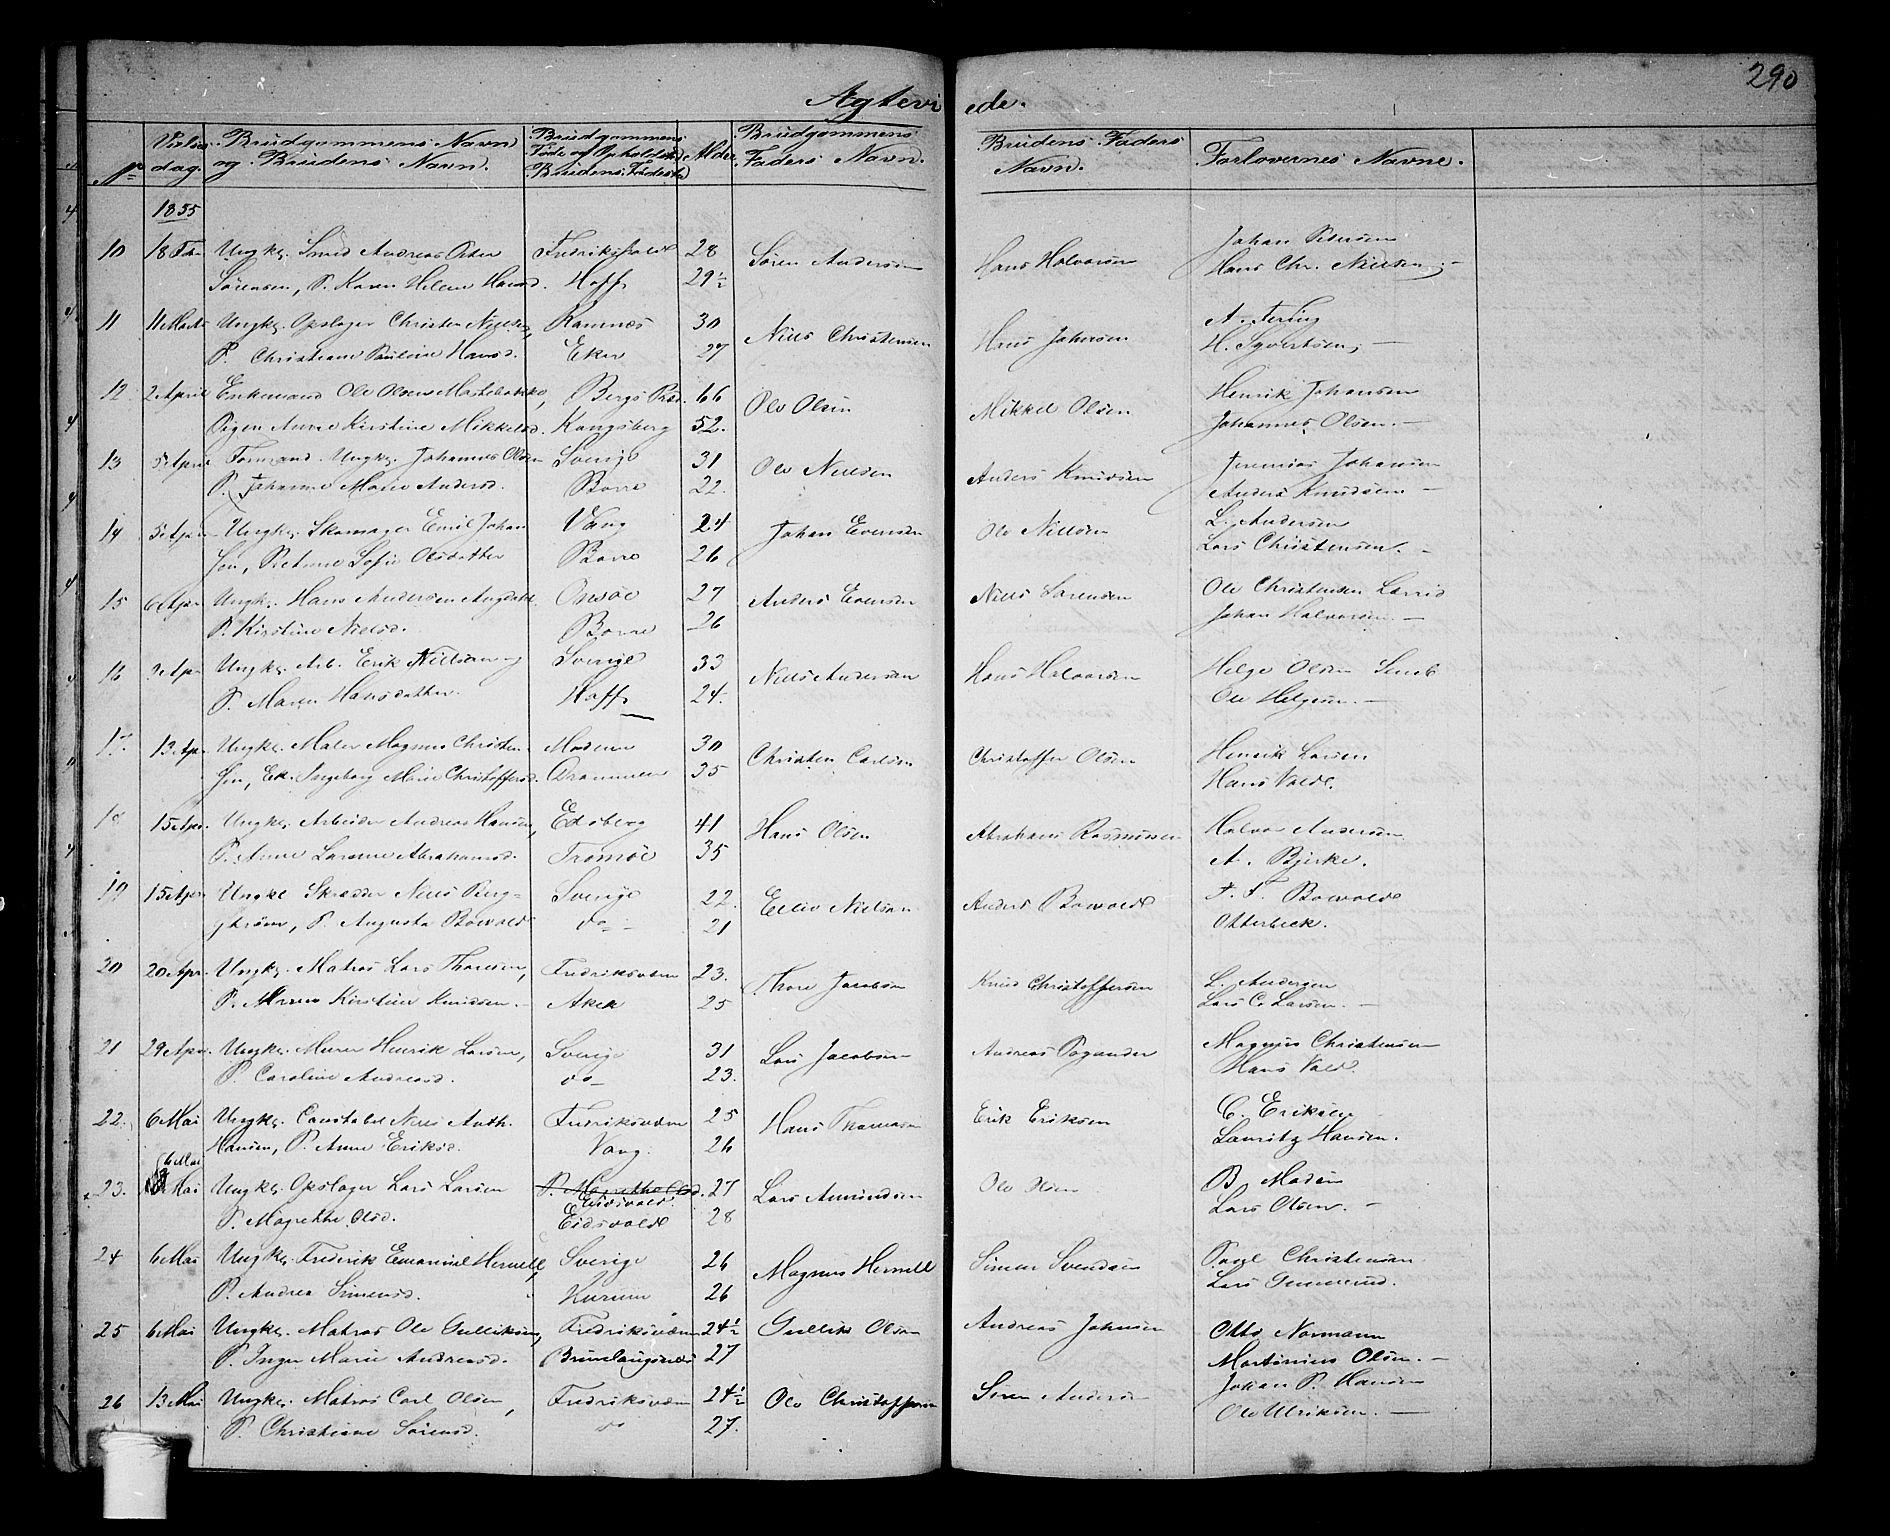 290
Agtevi ede.
No Vielses dag. Brudgommens Navn og Brudens Navn. Brudgommens Føde og Opholdsted Brudens Fødested Alder Brudgommens Faders Navn. Brudens Faders Navn. Forlovernes Navne.
1855
10 18 Feb Ungk. Smed Andreas Peter Fredrikshald 28 Sören Andersen Hans Halvorsen Johan Petersen
Sørensen, P. Karen Helene Hansd. Hoff 29½ Hans Chr. Nielsen
11 11 Marts Ungk. Opslager Christen Nielsen, Ramnæs 30 Niels Christensen Hans Johnsen
P. Christiane Pauline Hansd. Eker 27 H. Syvertsen
12 2 April Enkemand Ole Olsen Bergs Præ. 66 Ole Olsen Mikkel Olsen Henrik Johansen
Pigen Anne Kirstine Mikkelsd. Kongsberg 52. Johannes Olsen. —
13 5 April Formand. Ungk. Johannes Olsen Sverige 31 Ole Nielsen Anders Knudsen Jeremias Johansen
P. Johanne Marie Andersd. Borre 22. Anders Knudsen. —
14 5 Apr Ungk. Skomager Emil Johan Vang 24 Johan Evensen Ole Nielsen L. Andersen
sen, Petrine Sofie Olsdatter Borre 26 Lars Christensen. —
15 6 Apr Ungk. Hans Andersen Onsøe 27 Anders Evensen Niels Sørensen Ole Christensen
P. Kirstine Nielsd. Borre 26 Johan Halvorsen. —
16 9 Apr Ungk. Arb. Erik Nielsen og Sverige 33 Niels Andersen Hans Halvorsen Helge Olsen
P. Maren Hansdatter. Hoff 24. Ole Helgesen. —
17. 13 Apr. Ungk. Maler Magnus Christen- Modum 30 Christen Carlsen Christoffer Olsen Henrik Larsen
sen, Ek. Ingeborg Marie Christoffersd. Drammen 35 Hans Vold.
18 15 Apr. Ungk. Arbeider Andreas Hansen, Edsberg 41 Hans Olsen Abraham Rasmussen Halvor Andersen
P. Anne Lovine Abrahamsd. Tromöe 35 A. Bjerke.
19 15 Apr Ungkl Skrædder Niels Berg- Sverige 22. Ellev Nielsen Anders Bowald F. F. Bowald
gstrøm, P. Augusta Bowald do — 21 Otterbeck.
20 20 Apr. Ungk. Matros Lars Thoresen, Fredriksværn 23. Thore Jacobsen Knud Christoffersen L. Andersen
P. Maren Kirstine Knudsen. Aker 25 Lars C. Larsen. —
21 29 Apr. Ungk. Murer Henrik Larsen, Sverige 31 Lars Jacobsen Andreas Magnus Christensen
P. Caroline Andreasd. do — 23. Hans Vold.
22. 6 Mai Ungk. Constabel Niels Anth. Fredriksværn 25 Hans Thomasen Erik Eriksen C. Eriksen
Hansen, P. Anne Eriksd. Vang. 26 Lauritz Hansen.
6 Mai
23. Mai Ungk. Opslager Lars Larsen P. Magrethe Olsd. 27 Lars Amundsen Ole Olsen B. Madsen
Eidsvold.
P. Magrethe Olsd. Eidsvold 28 Lars Olsen. —
24 6 Mai Ungk. Frederik Emanuel Hernell, Sverige 26 Magnus Hernell Simen Svendsen Povel Christensen
P. Andrea Simensd. Hurum 26 Lars Gunnerud.
25 6 Mai Ungk. Matros Ole Gulliksen, Fredriksværn 24½ Gullik Olsen Andreas Johnsen Otto Normann
P. Inger Marie Andreasd. Brunlaugsnæs 27 Martinius Olsen. —
26 13 Mai Ungk. Matros Carl Olsen, Fredriksværn 24½ Ole Christoffersen Sören Andersen Johan P. Hansen
P. Christiane Sörensd. do 27. Ole Ulriksen. —